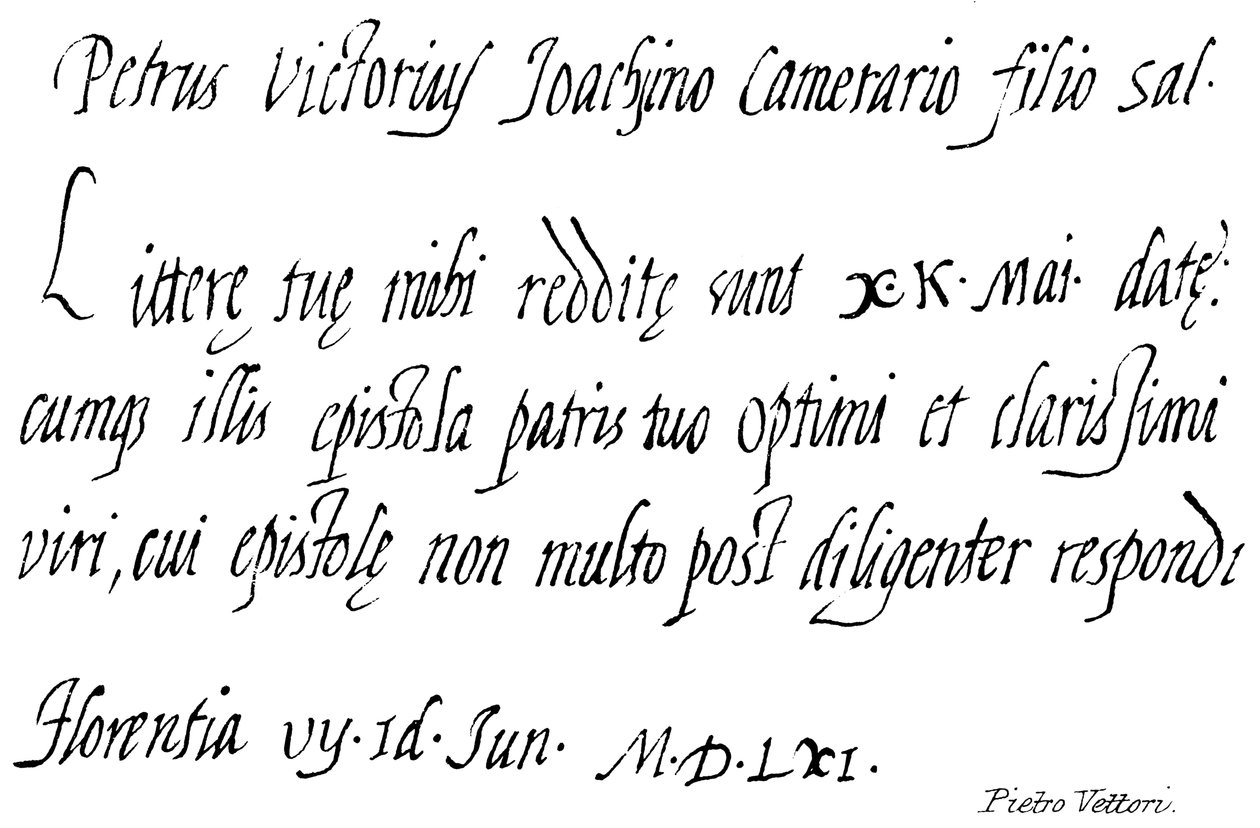 Petrus Victorius Joachino Camerario filio sal.
Litterę tuę mihi redditę sunt XK. Mai. datę:
cumq; illis epistola patris tuo optimi et clarissimi
viri, cui epistolę non multo post diligenter respondi
Florentia VIJ. Id. Jun. M.D.LXI.
Pietro Vettori.